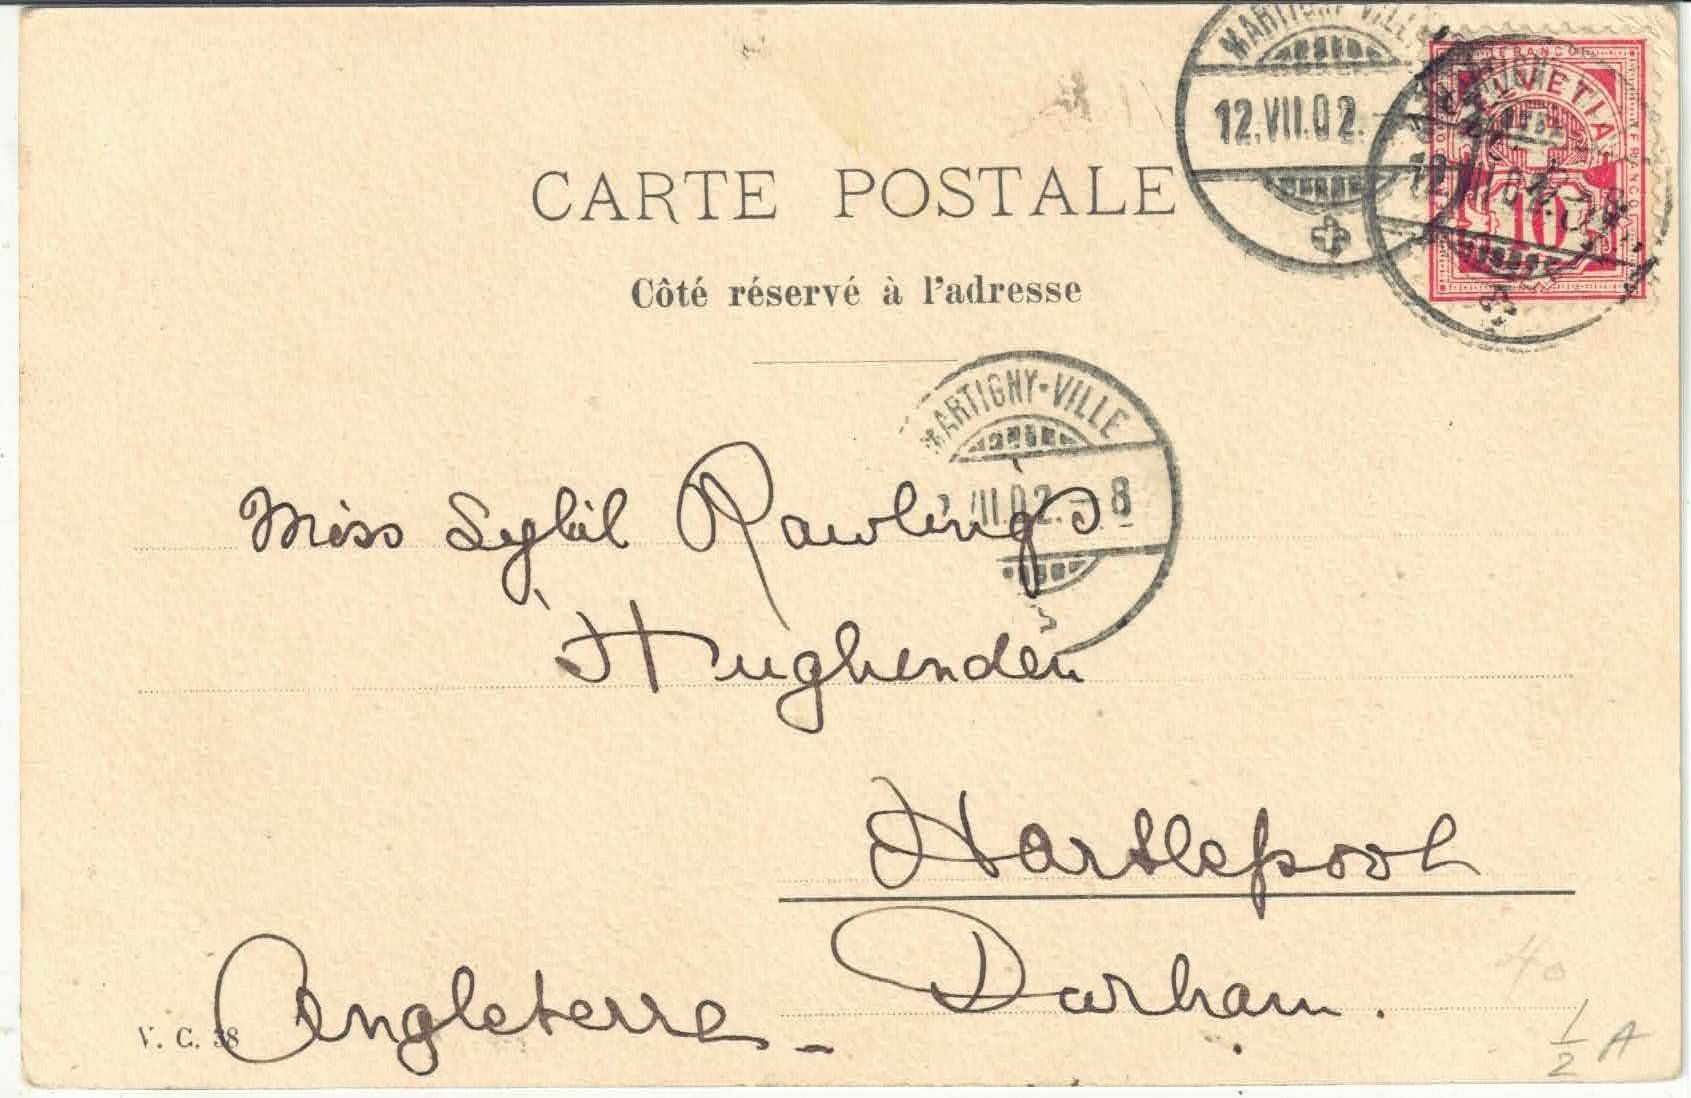 MARTIGNY-VILLE
12.VII.02.
FRANCO
HELVETIA
FRANCO
10
CARTE POSTALE
Côté réservé à l'adresse
MARTIGNY-VILLE
VII.02. - 8
Miss Sybil Rawlings
"Hughenden
Hartlepool
Durham.
Angleterre
V. C. 38
40
1/2 A